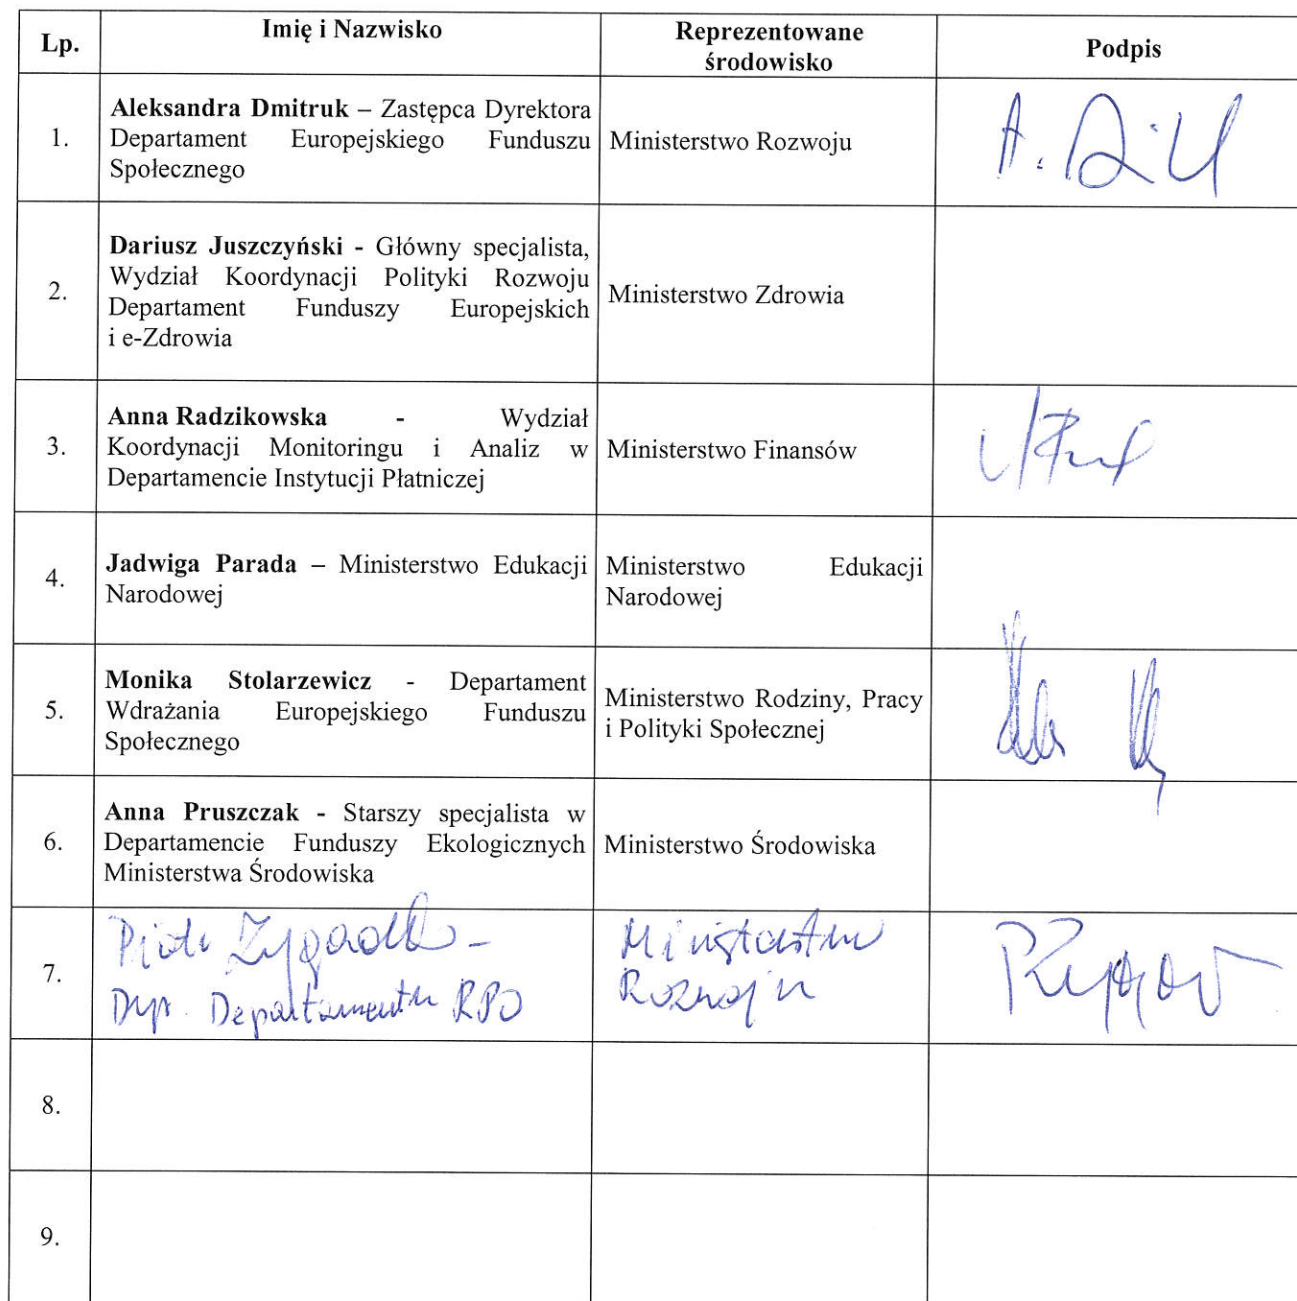 Lp.
Imię i Nazwisko
Reprezentowane
środowisko
Podpis
1.
Aleksandra Dmitruk – Zastępca Dyrektora
Departament Europejskiego Funduszu
Społecznego
Ministerstwo Rozwoju
2.
Dariusz Juszczyński - Główny specjalista,
Wydział Koordynacji Polityki Rozwoju
Departament Funduszy Europejskich
i e-Zdrowia
Ministerstwo Zdrowia
3.
Anna Radzikowska - Wydział
Koordynacji Monitoringu i Analiz w
Departamencie Instytucji Płatniczej
Ministerstwo Finansów
4.
Jadwiga Parada – Ministerstwo Edukacji
Narodowej
Ministerstwo Edukacji
Narodowej
5.
Monika Stolarzewicz - Departament
Wdrażania Europejskiego Funduszu
Społecznego
Ministerstwo Rodziny, Pracy
i Polityki Społecznej
6.
Anna Pruszczak - Starszy specjalista w
Departamencie Funduszy Ekologicznych
Ministerstwa Środowiska
Ministerstwo Środowiska
7.
Piotr Zygadło -
Dyr. Departamentu RPO
Ministerstwo
Rozwoju
8.
9.